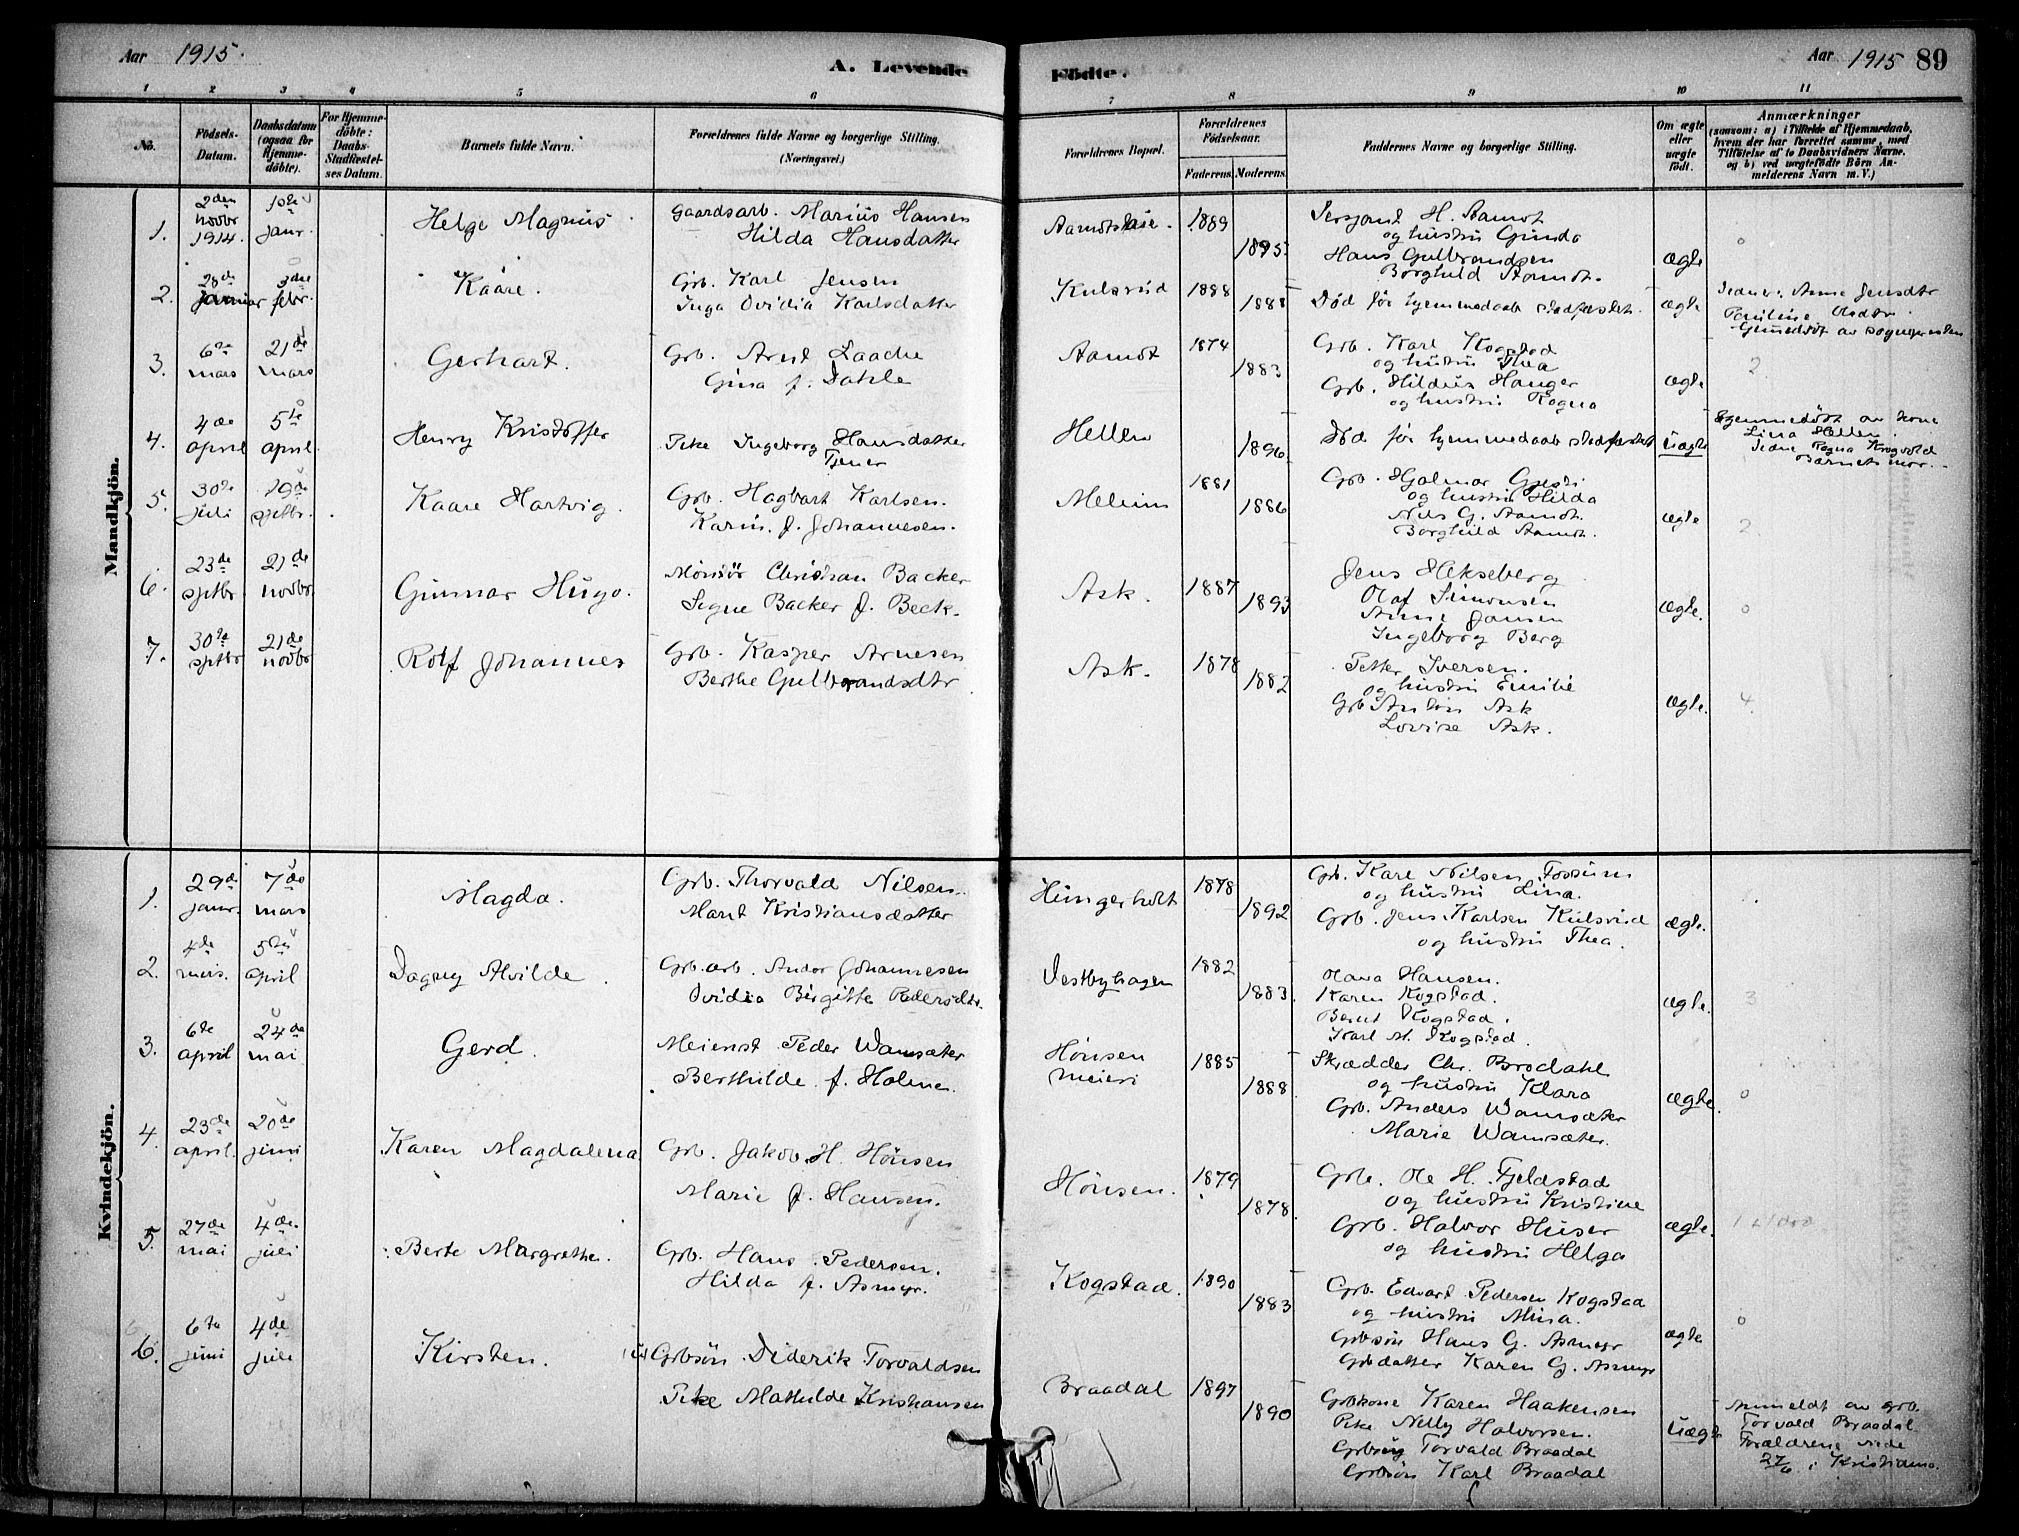 Aar 1915.
A. Levende Födte.
Aar 1915 89
1 2 3 4 5 6 7 8 9 10 11
No.
Födsels-Datum.
Daabsdatum (ogsaa for Hjemme-döbte).
For Hjemme-döbte: Daabs-Stadfæstel-ses Datum.
Barnets fulde Navn.
Forældrenes fulde Navne og borgerlige Stilling.
(Næringsvei.)
Forældrenes Bopæl.
Forældrenes Födselsaar.
Faderens. Moderens.
Faddernes Navne og borgerlige Stilling.
Om ægte eller uægte födt.
Anmærkninger
(saasom: a) i Tilfælde af Hjemmedaab, hvem der har forrettet samme, med Tilföielse af to Daabsvidners Navne. og b) ved uægtefödte Börn Anmelderens Navn m. V.)
Mandkjön.
1. 2den novbr 1914. janr. Helge Magnus
Gaardsarb. Marius Hansen
Hilda Hansdatter
1889 1895.
Sersjant H. Aamot
og hustru Gunda
Hans Gulbrandsen
Borghild Aamot.
ægte
2. 28de januar 3die febr. Kaare.
Grb. Karl Jensen
Inga Ovidia Karlsdatter
Kulsrud 1888 1888
Död før hjemmedaab stadfæstet. ægte
3. 6te mars 21de mars Gerhart.
Grb. Arnt Laache
Gina f. Dahle
Aamot 1874 1883
Grb. Karl Kogstad
og hustru Thea
Grb. Hildus Hanger
og hustru Ragna
ægte 2.
4. 4de april 5te april. Henry Kristoffer
Pike Ingeborg Hansdatter
Tjener
Hellen 1896
Død før hjemmedaab stadfæstet uægte
Hjemmedöbt av kone
Lina Hellen.
Ragna Krogvold
Barnets mor.
5. 30te juli 19de sptbr. Kaare Hartvig.
Grb. Hagbart Karlsen.
Karin f. Johannesen.
Melum 1881 1886
Grb. Hjalmar Gjesti
og hustru Hilda
Nils G. Aamot.
Borghild Aamot.
ægte 2.
6. 23de sptbr 21de novbr Gunnar Hugo.
Christian Backer
Signe Backer f. Beck.
Ask. 1887 1893
Jens Hekseberg
Olaf Simonsen
Anne Jansen
Ingeborg Berg
ægte. 0
7. 30te sptbr 21de novbr Rolf Johannes
Grb. Kasper Arnesen
Berthe Gulbrandsdtr
Ask. 1878 1882
Petter Iversen.
og hustru Emilie
Grb Anton Ask
Lovise Ask.
ægte. 4.
Kvindekjön.
1. 29de janr. 7de mars Magda.
Grb. Thorvald Nilsen.
Marit Kristiansdatter
Hungerholt 1878 1892
Grb. Kare Nilsen Fossum
og hustru Lina.
Grb. Jens Karlsen Kulsrud
og hustru Thea.
ægte.
2. 4de mars. 5te april Dagny Alvilde
Grb.arb. Andor Johannesen
Ovidia Birgitte Pedersdtr.
Vestbyhagen 1882 1883.
Olava Hansen.
Karen Kogstad.
Bernt Kogstad.
Karl M. Kogstad.
ægte. 3
3. 6te april 24de mai Gerd.
Meierist Peder Wamsæter
Berthilde f. Holme.
Hønsen meieri 1885 1888
Skrædder Chr. Brodahl
og hustru Klara
Grb. Anders Wamsæter
Marie Wamsæter.
ægte. 0
4. 23de april. 20de juni Karen Magdalena
Grb. Jakob H. Hønsen
Marie f. Hansen.
Hønsen. 1879 1878.
Grb. Ole H. Fjeldstad
og hustru Kristine
Grb. Halvor Huser
og hustru Helga
ægte.
5. 27de mai 4de. juli Berte Margrethe.
Grb. Hans Pedersen.
Hilda f. Asmyr.
Kogstad. 1890 1883
Grb. Edvart Pedersen Kogstad
og hustru Mina.
Grbsøn Hans G. Asmyr
Grbdatter Karen G. Asmyr
ægte 0
6. 6te juni 4de juli Kirsten.
Grbsøn Diderik Torvaldsen
Pike Mathilde Kristiansen
Braadal 1897 1890
Grbkone Karen Haakensen
Pike Nelly Halvorsen.
Torvald Braadal
Grbsøn Karl Braadal
uægte
Anmeldt av grb.
Torvald Braadal
Forældrene viede
27/6 i Kristiania.